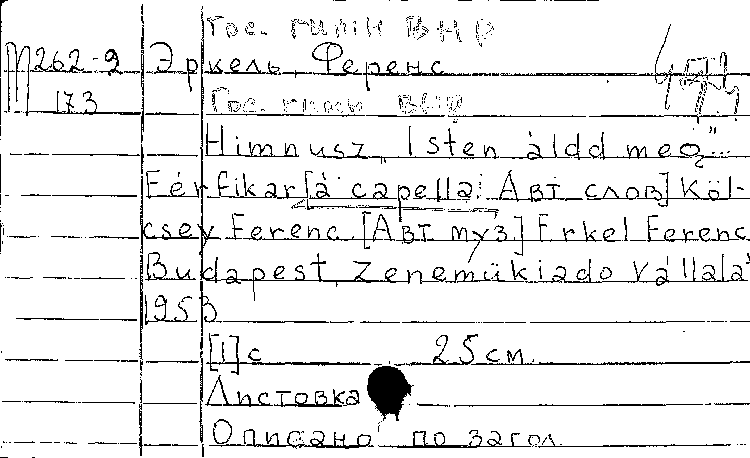 Гос. гимн ВНР
М262-2 Эркель, Ференс
173 Гос. гимн ВНР
Himnusz „Isten áldd meg"...
Férfikar [a' capella. Авт слов] Köl-
csey Ferenc. [Авт муз.] Erkel Ferenc
Budapest, Zeneműkiado Vállala
1953
[1] с 25 см.
Листовка
Описано по загол.